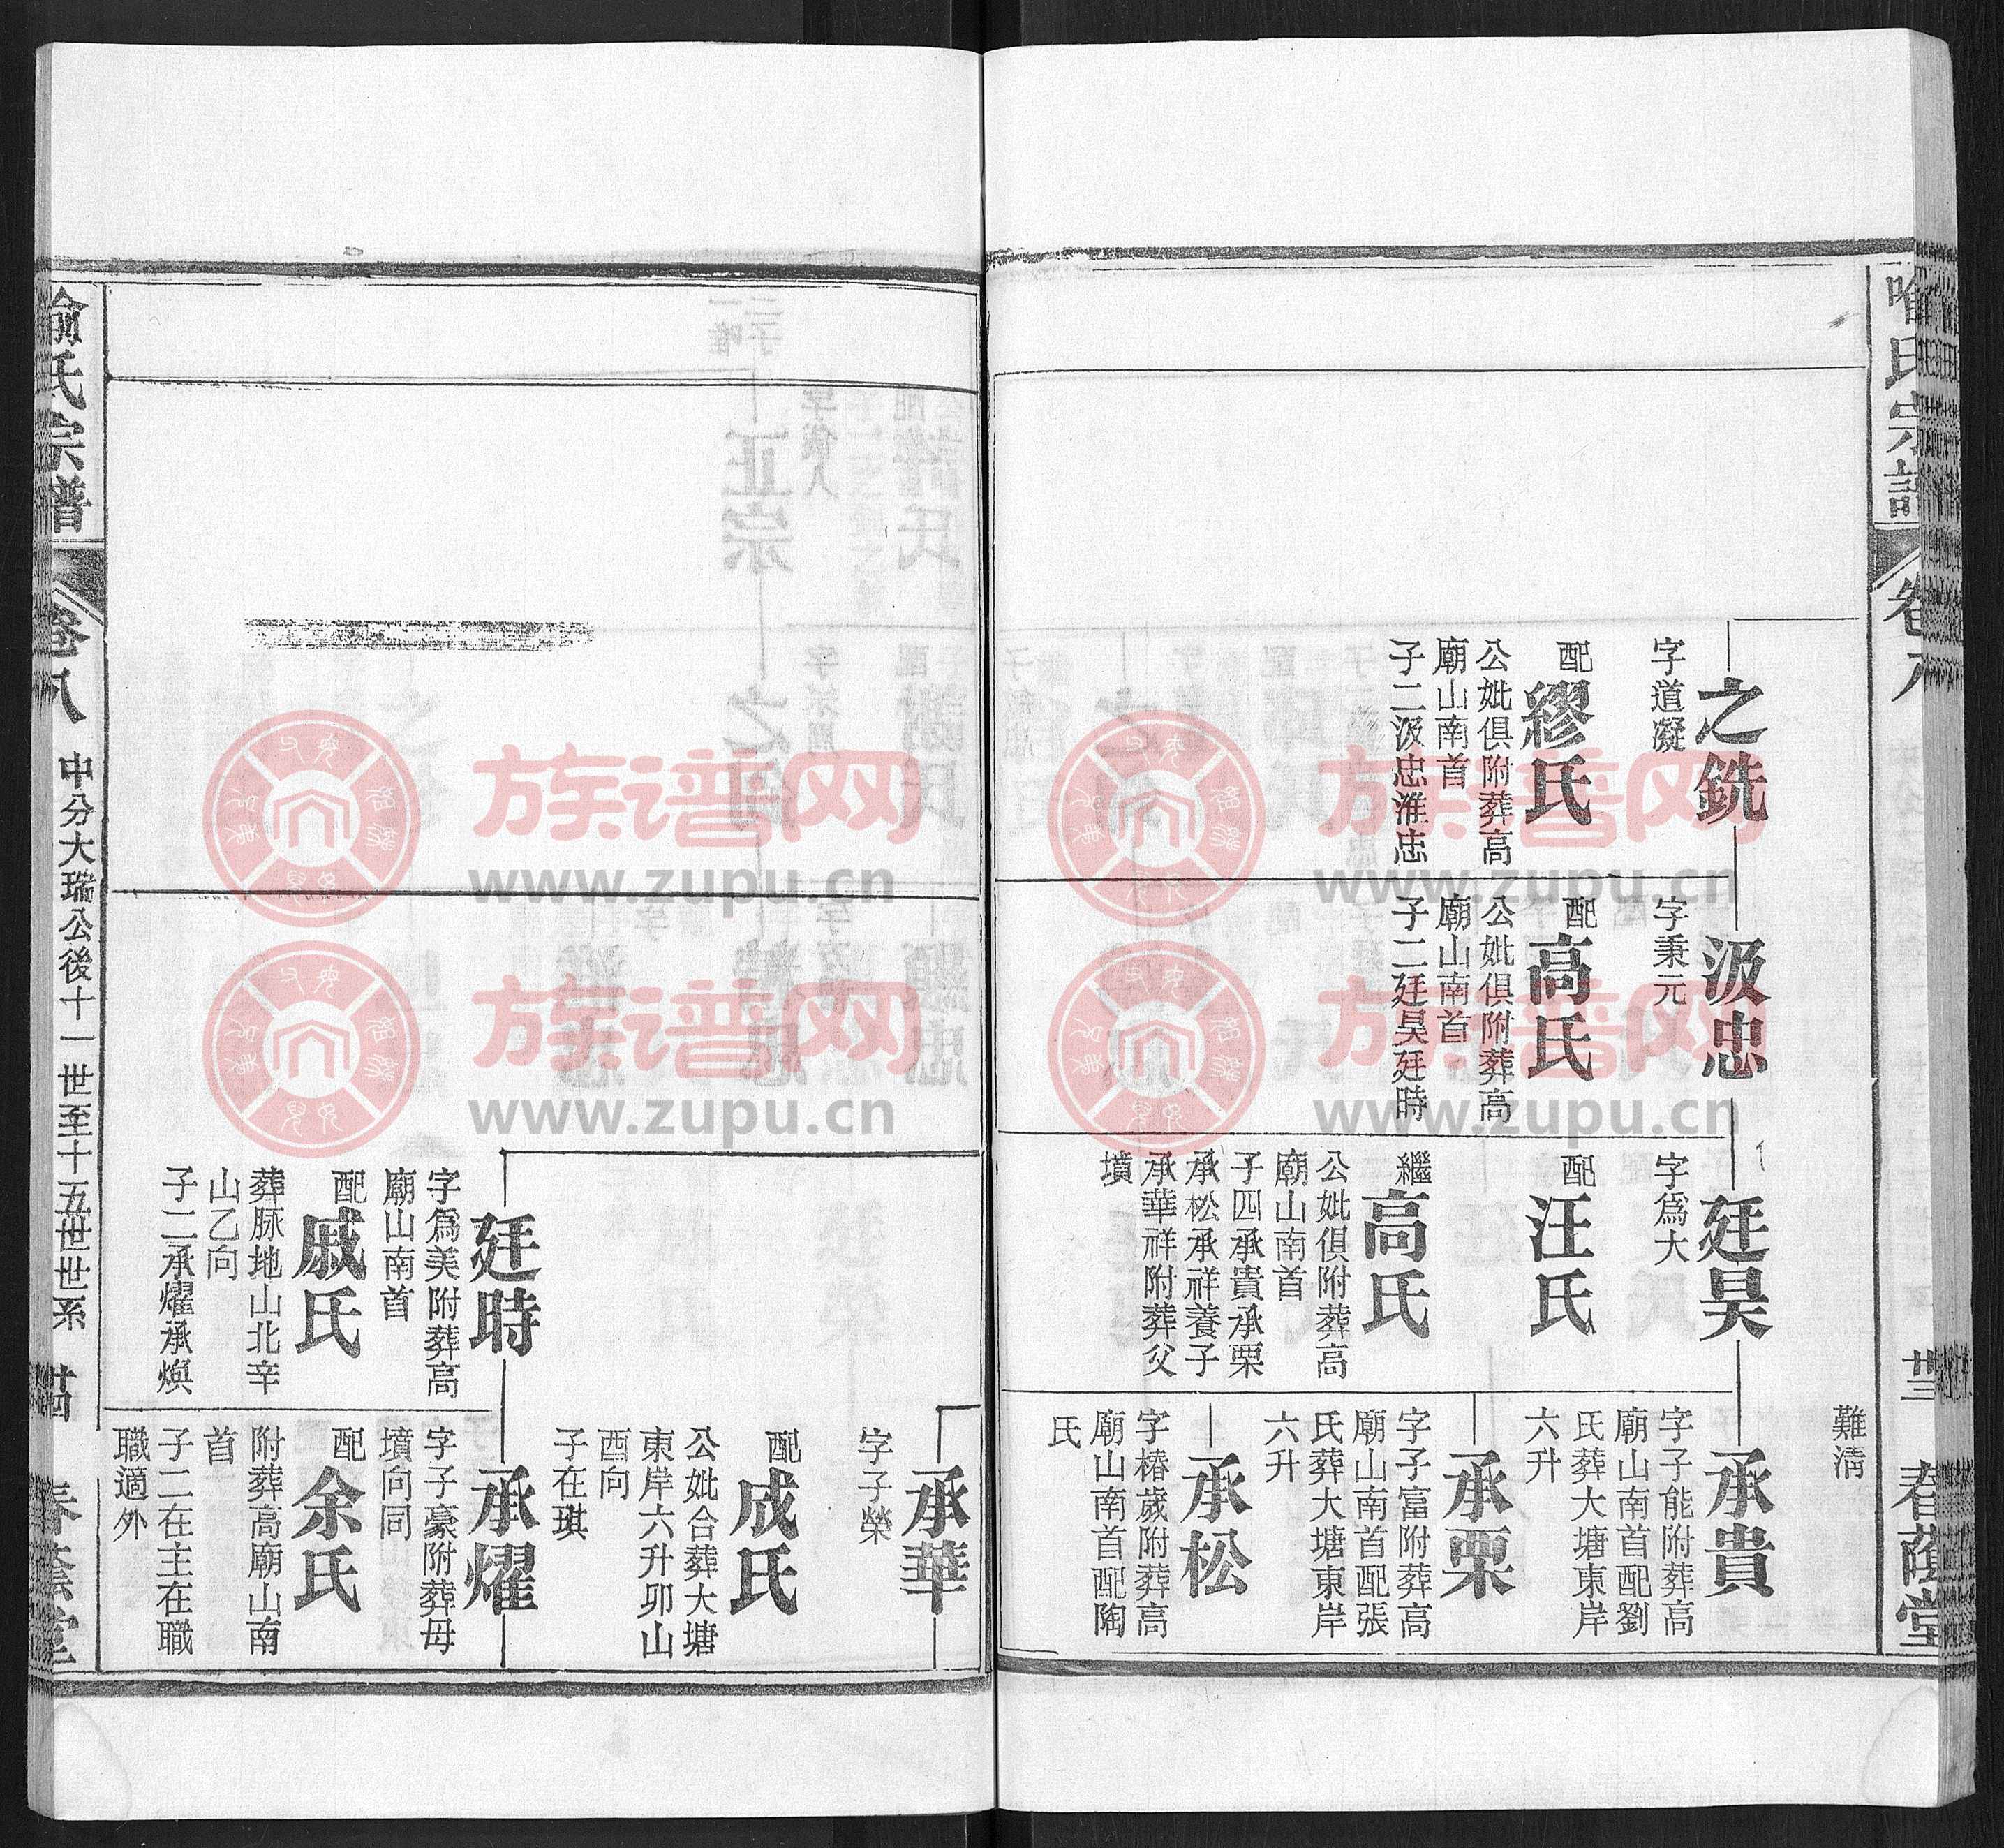 喻氏宗譜
卷八
廿三
春蔭堂
難清
之銑
字道凝
配繆氏
公妣俱附葬高
廟山南首
子二汲忠淮忠
汲忠
字秉元
配高氏
公妣俱附葬高
廟山南首
子二廷昊廷時
廷昊
字為大
配汪氏
繼高氏
公妣俱附葬高
廟山南首
子四承貴承栗
承松承祥養子
承華祥附葬父
墳
承貴
字子能附葬高
廟山南首配劉
氏葬大塘東岸
六升
承栗
字子富附葬高
廟山南首配張
氏葬大塘東岸
六升
承松
字椿歲附葬高
廟山南首配陶
氏
承華
字子榮
配成氏
公妣合葬大塘
東岸六升卯山
酉向
子在琪
廷時
字為美附葬高
廟山南首
配戚氏
葬脉地山北辛
山乙向
子二承燿承煥
承燿
字子豪附葬母
墳向同
配余氏
附葬高廟山南
首
子二在主在職
職適外
喻氏宗譜
卷八
中分大瑞公後十一世至十五世世系
廿四
春蔭堂
族谱网
www.zupu.cn
族谱网
www.zupu.cn
族谱网
www.zupu.cn
族谱网
www.zupu.cn